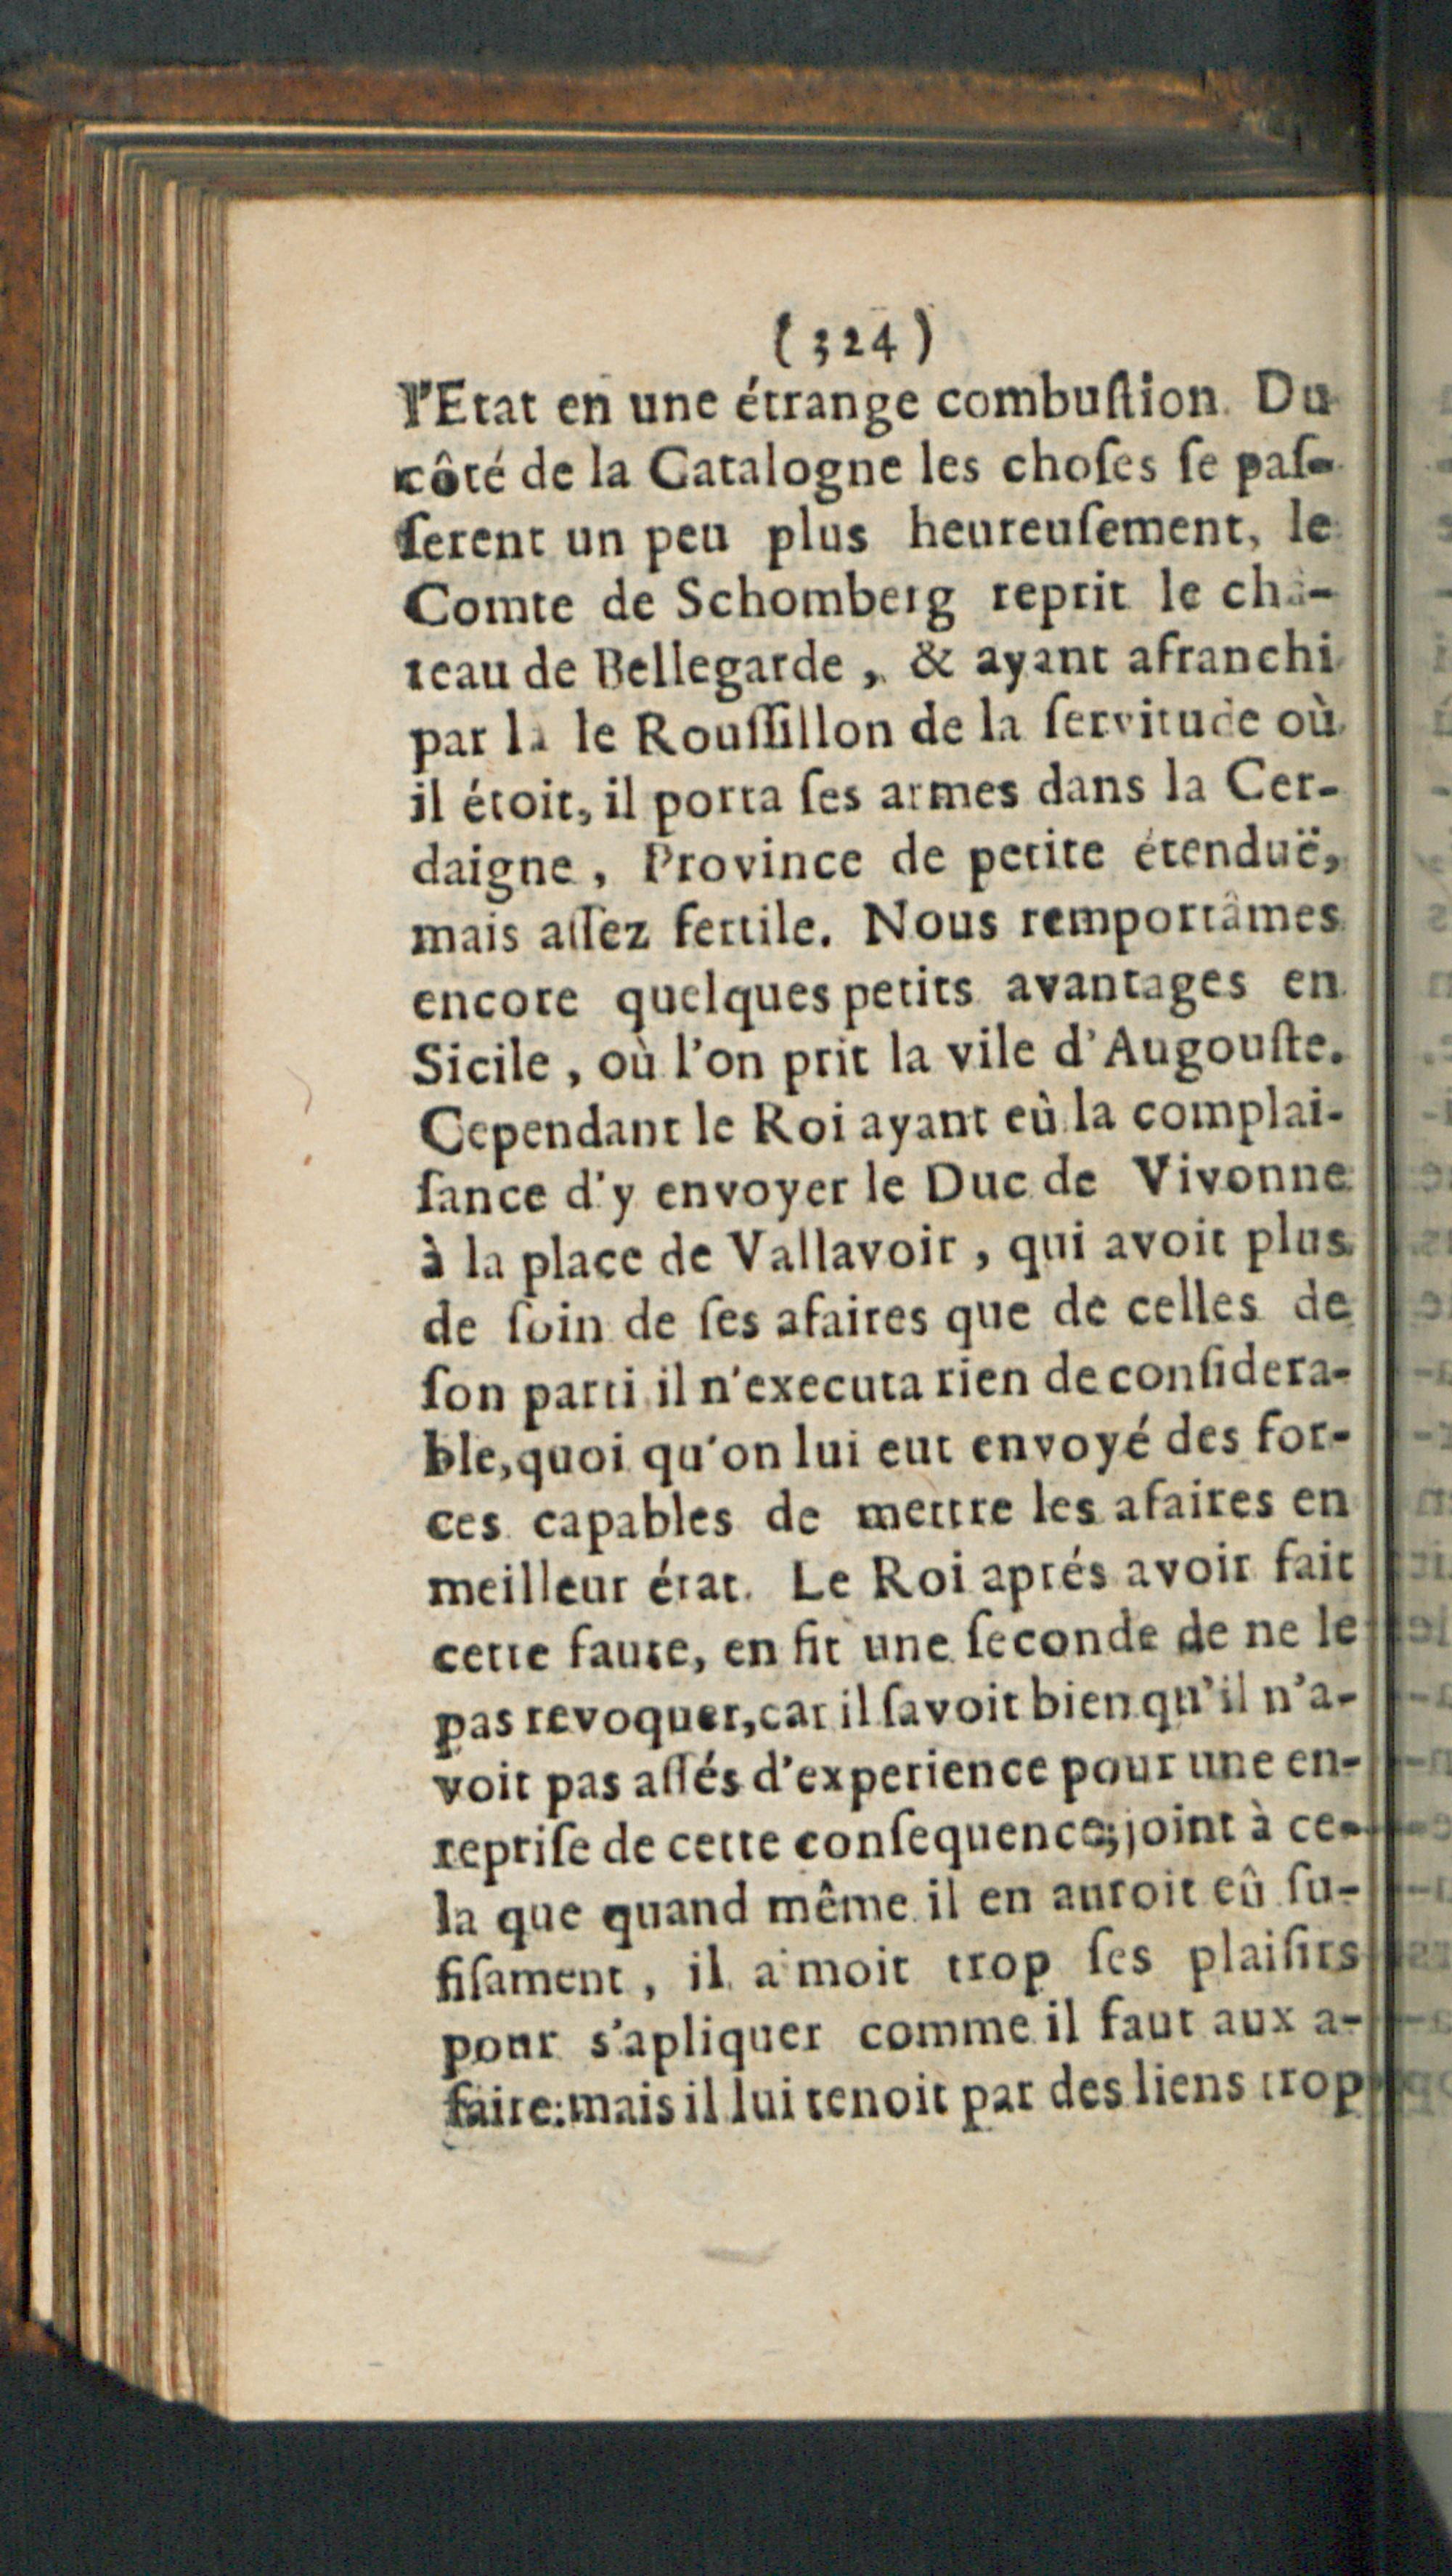 (324)
l'Etat en une étrange combuſtion. Du
côté de la Catalogne les choſes ſe paſ-
ſerent un peu plus heureuſement, le
Comte de Schomberg reprit le châ-
teau de Bellegarde, & ayant afranchi
par la le Rouſſillon de la ſervitude où
il étoit, il porta ſes armes dans la Cer-
daigne, Province de petite étenduë,
mais aſſez fertile. Nous remportâmes
encore quelques petits avantages en
Sicile, où l'on prit la vile d'Augouſte.
Cependant le Roi ayant eù la complai-
ſance d'y envoyer le Duc de Vivonne
à la place de Vallavoir, qui avoit plus
de ſoin de ſes afaires que de celles de
ſon parti il n'executa rien de conſidera-
ble, quoi qu'on lui eut envoyé des for-
ces capables de mettre les afaires en
meilleur état. Le Roi aprés avoir fait
cette faute, en fit une ſeconde de ne le
pas revoquer, car il ſavoit bien qu'il n'a-
voit pas aſſés d'experience pour une en-
repriſe de cette conſequence; joint à ce-
la que quand même il en auroit eû ſu-
fiſament, il aimoit trop ſes plaiſirs
pour s'apliquer comme il faut aux a-
faire: mais il lui tenoit par des liens trop